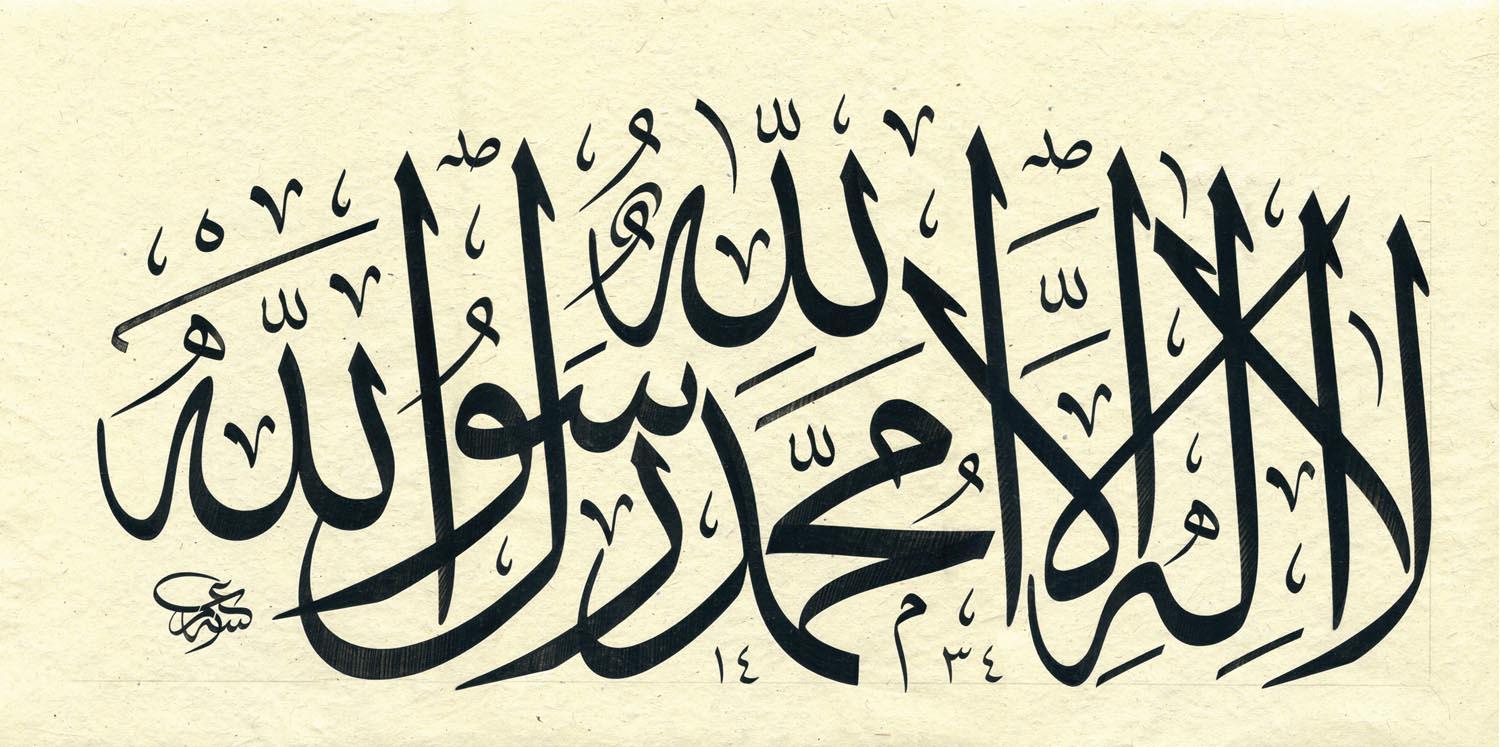 لا إله إلا الله محمد رسول الله
١٤ ٣٤